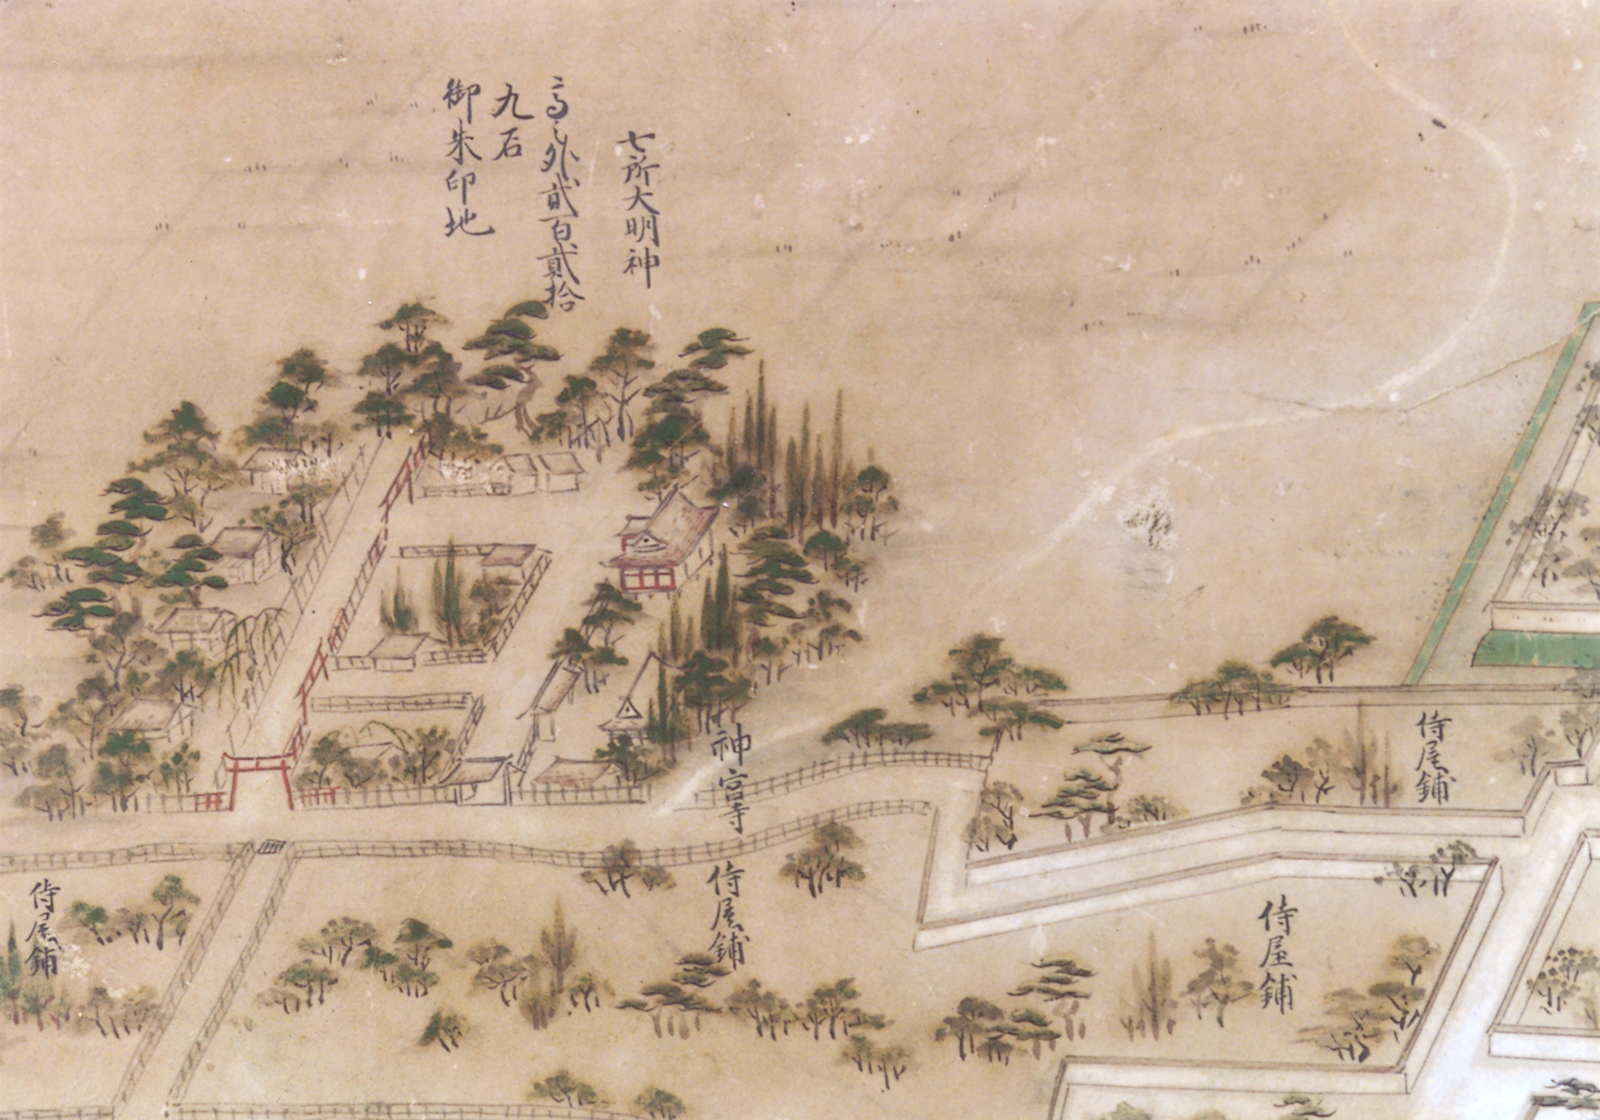 七所大明神
高之外貮百貮拾
九石
御朱印地
神宮寺
侍屋鋪
侍屋鋪
侍屋鋪
侍屋鋪